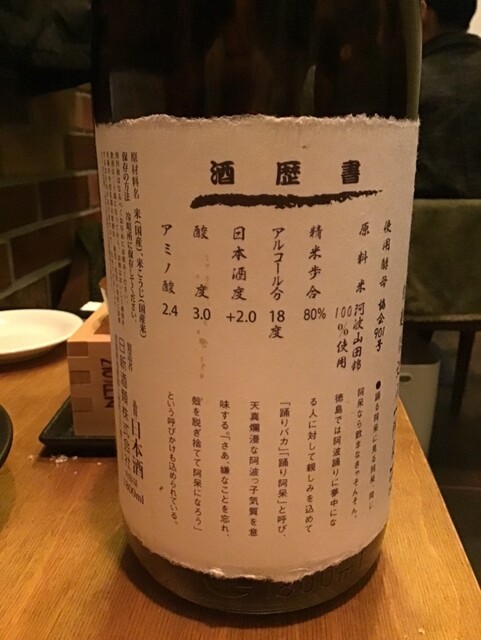 酒歴書
使用酵母 協会901号
原料米 阿波山田錦
100%使用
精米歩合 80%
アルコール分 18度
日本酒度 +2.0
酸度 3.0
アミノ酸 2.4
●踊る阿呆に見る阿呆、同じ
阿呆なら飲まなきゃそんそん。
徳島では阿波踊りに夢中にな
る人に対して親しみを込めて
「踊りバカ」「踊り阿呆」と呼び、
天真爛漫な阿波っ子気質を意
味する。「さあ、嫌なことを忘れ、
殻を脱ぎ捨てて阿呆になろう」
という呼びかけも込められている。
原材料名 米(国産)・米こうじ(国産米)
保存の方法 冷暗所に保存してください。
製造者
日新酒類株式会社
日本酒
1800ml